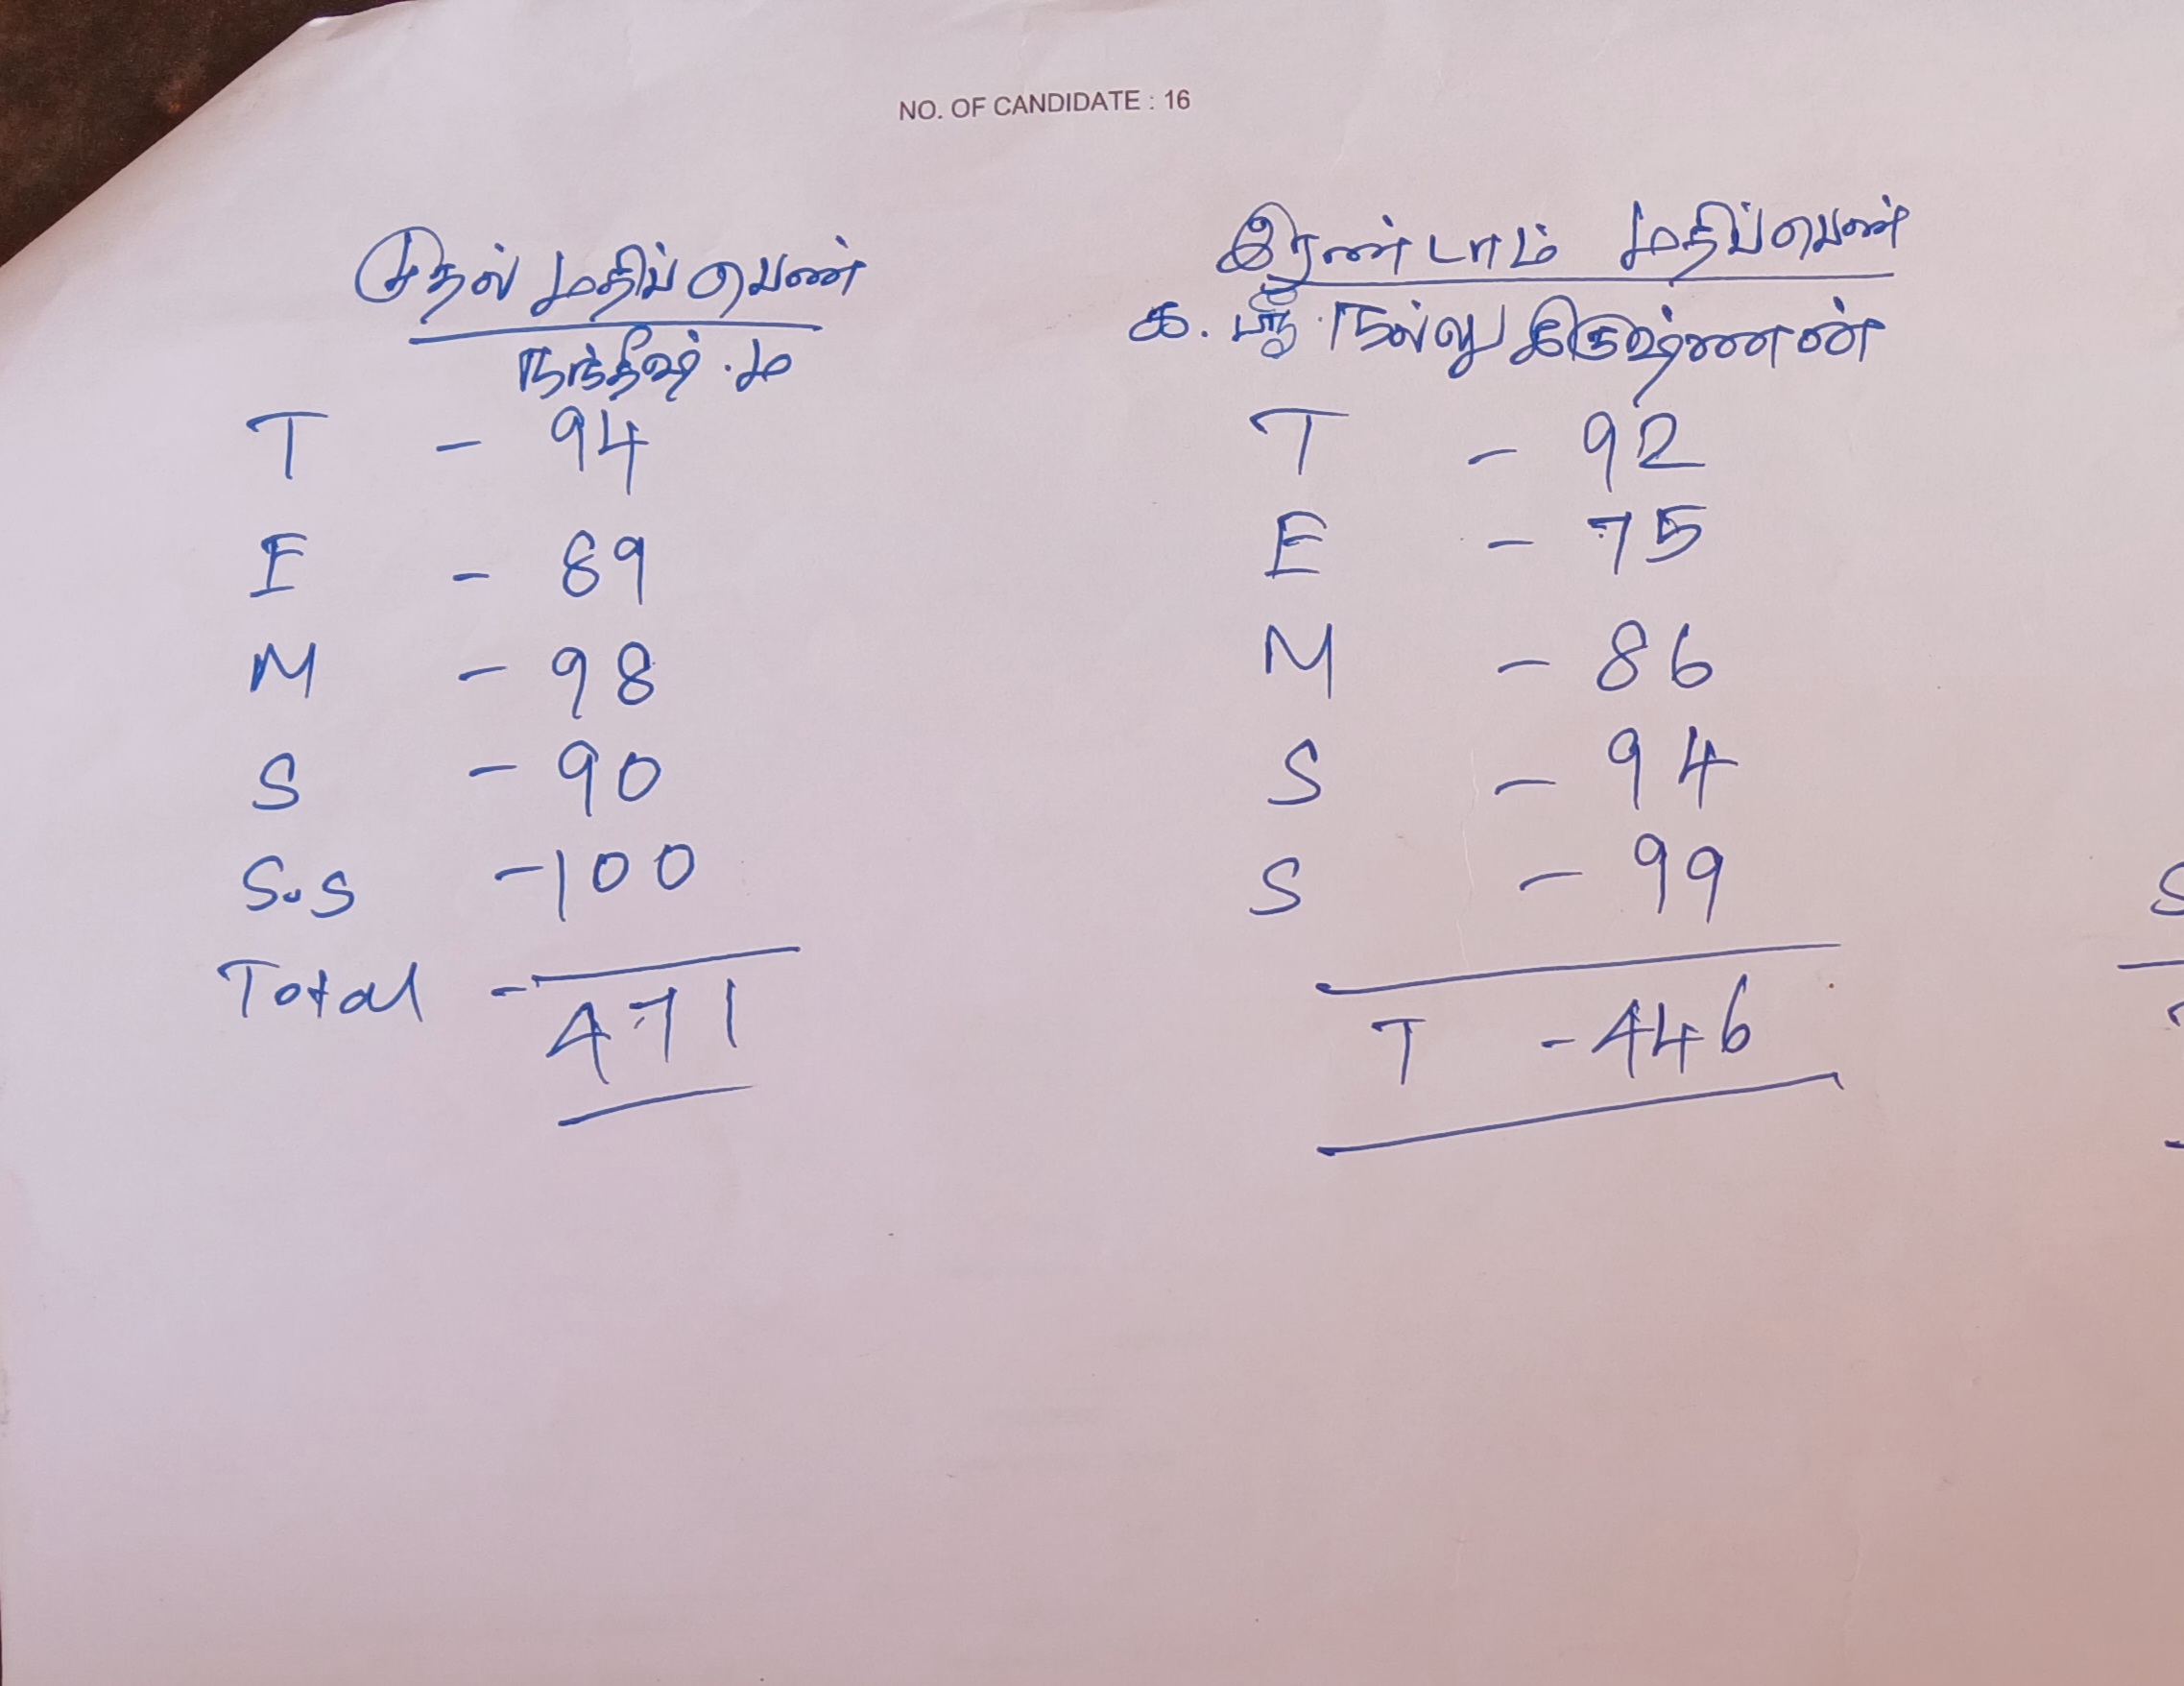 NO. OF CANDIDATE : 16
முதல் மதிப்பெண்
நந்தீஷ் . ம
T - 94
E - 89
M - 98
S - 90
S.S - 100
Total - 471
இரண்டாம் மதிப்பெண்
க. நல்லு கிருஷ்ணன்
T - 92
E - 75
M - 86
S - 94
S - 99
T - 446